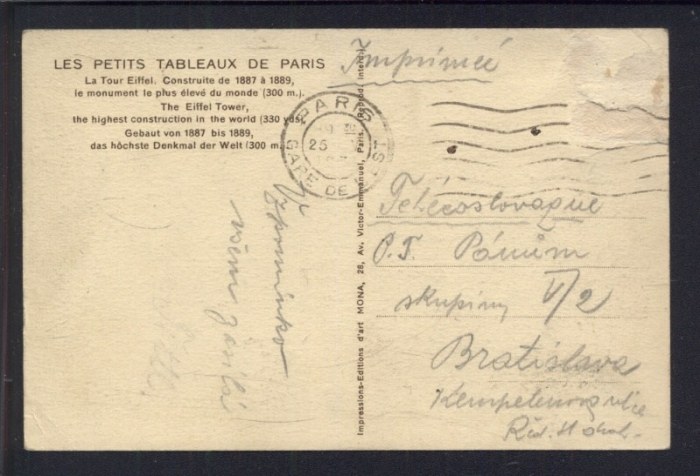 LES PETITS TABLEAUX DE PARIS
La Tour Eiffel. Construite de 1887 à 1889,
le monument le plus élevé du monde (300 m.).
The Eiffel Tower,
the highest construction in the world (330 yds).
Gebaut von 1887 bis 1889,
das höchste Denkmal der Welt (300 m.
Imprimée
PARIS
25
GARE DE EST
Vzpomínko
všem
Impressions-Editions d'art MONA, 26, Av. Victor-Emmanuel, Paris. Reprod. interdit
Tchécoslovaque
P.T. Pánům
skupiny V/2
Bratislava